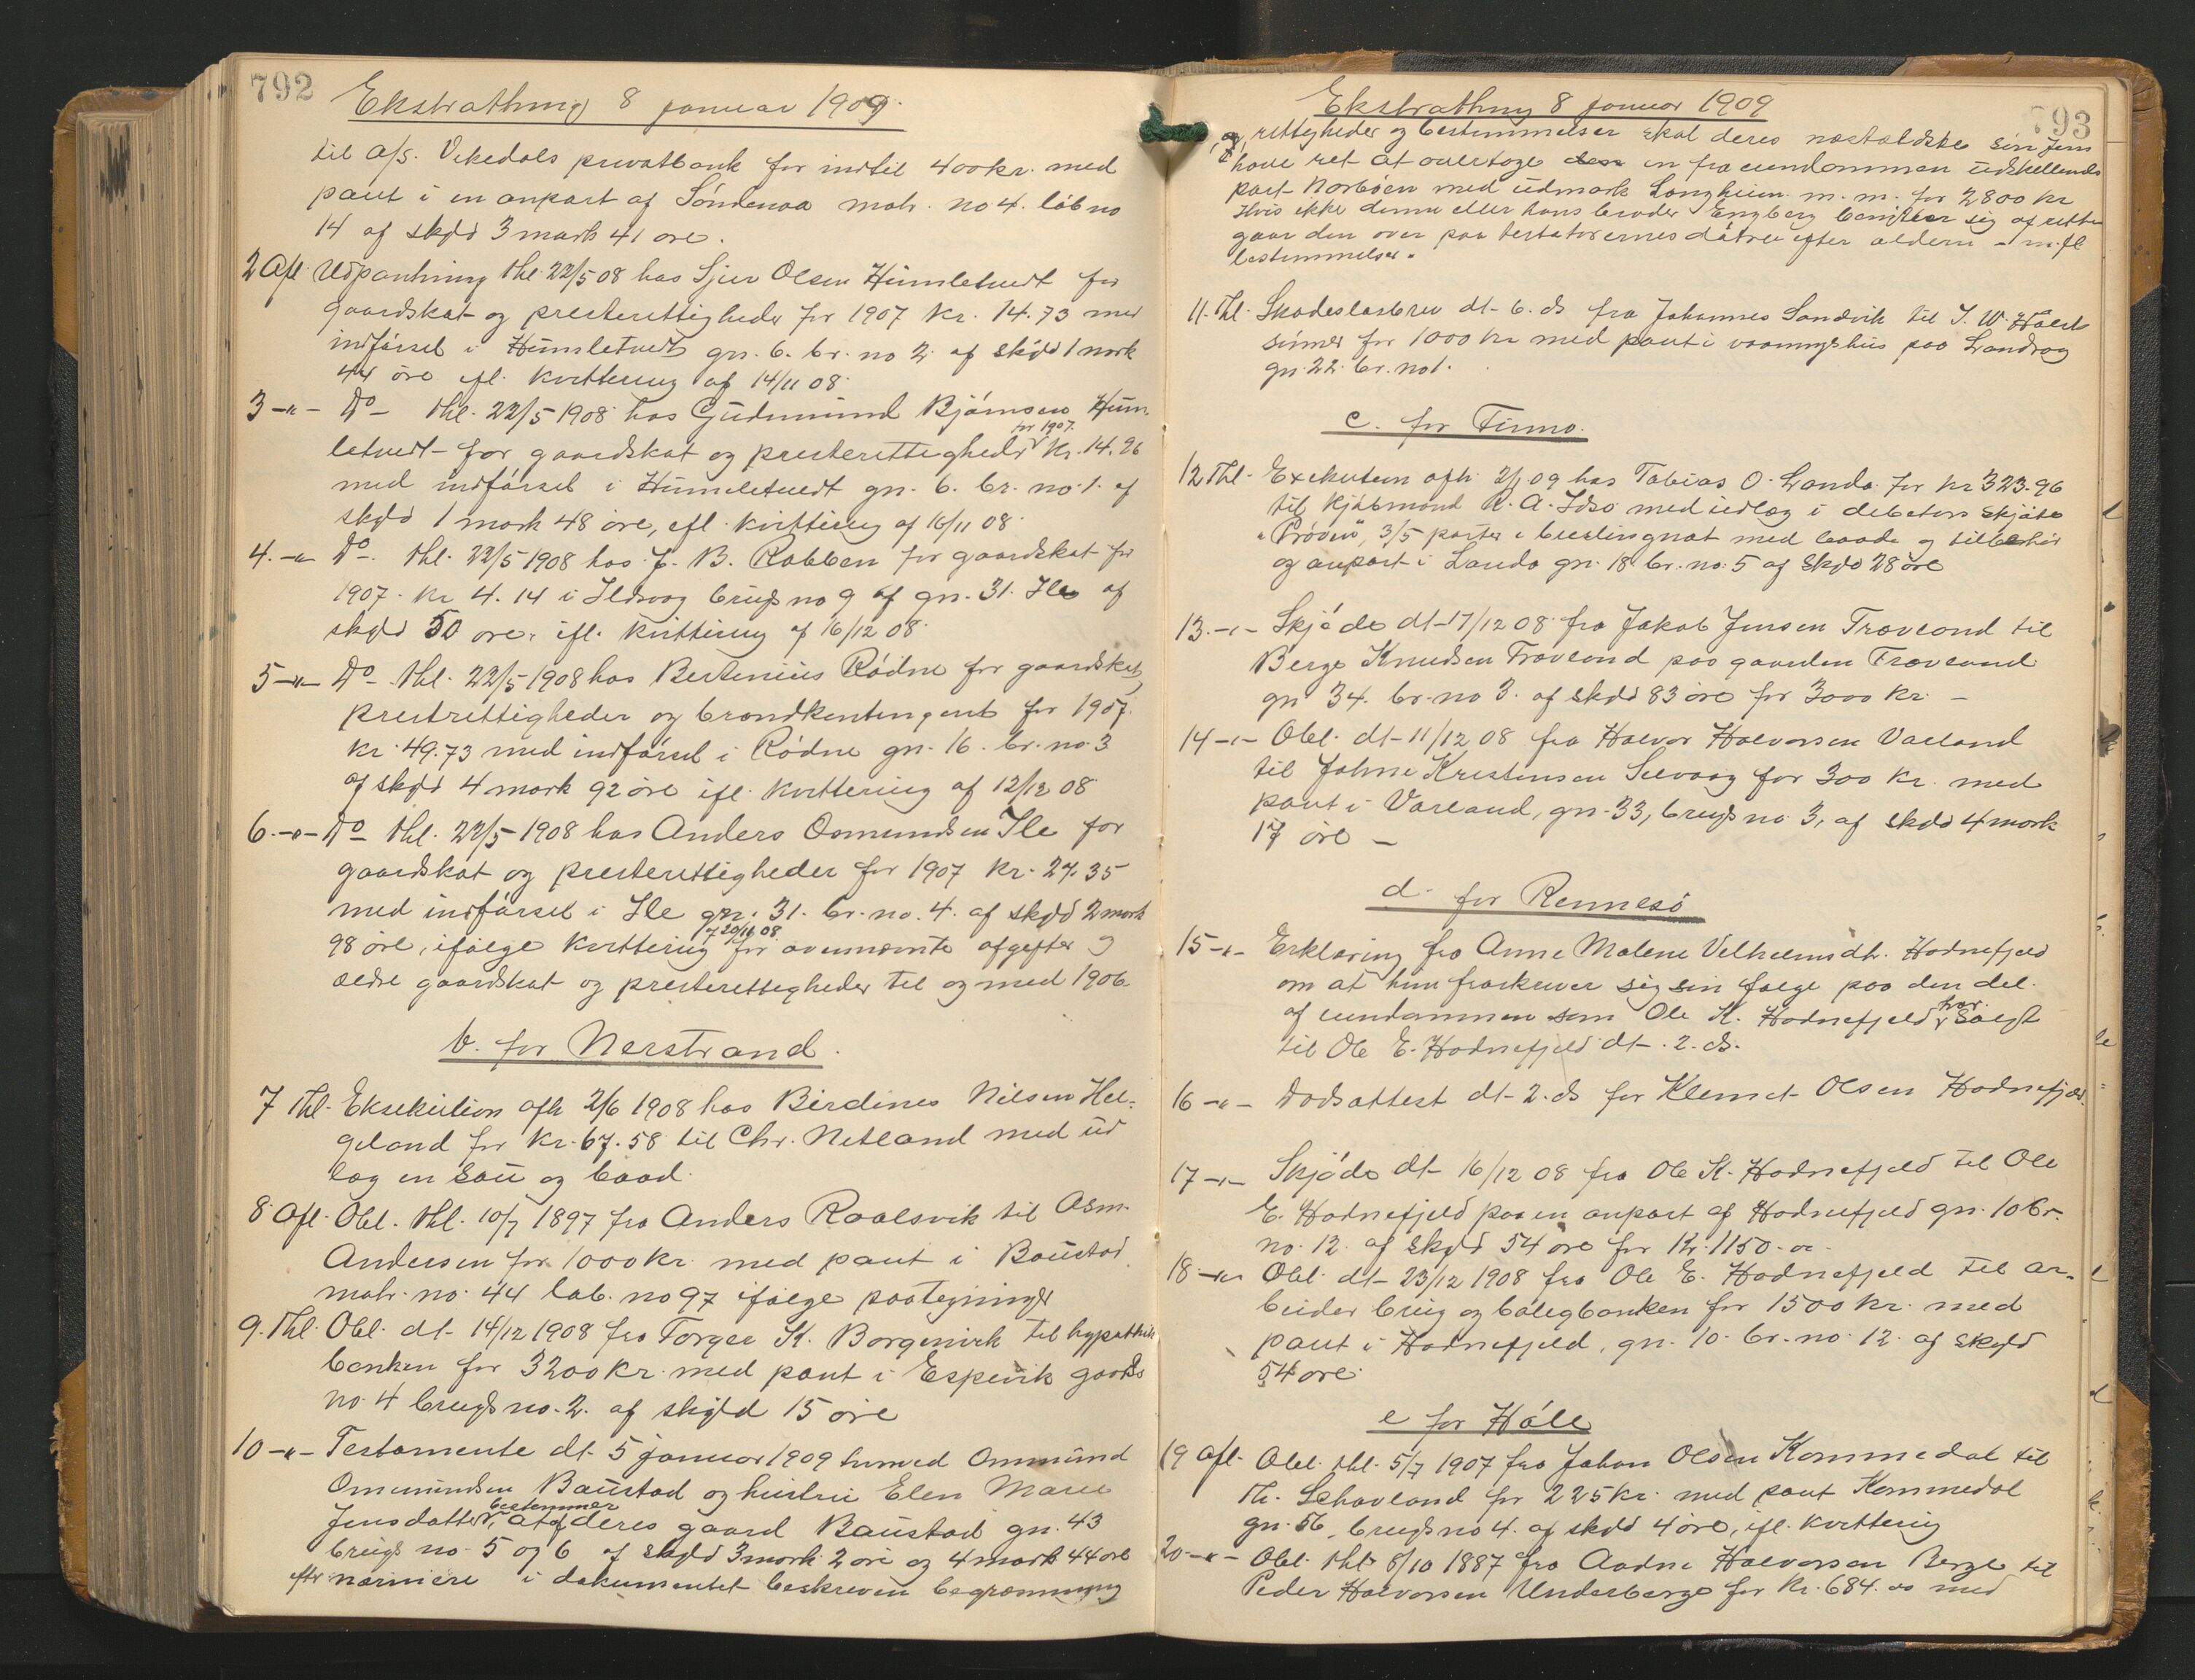 792
Ekstrathing 8 januar 1909.
til A/S. Vikedals privatbank for indtil 400 kr. med
pant i en anpart af Søndenaa matr. no 4. løb no
14 af skyld 3 mark 41 øre.
2 Afl. Udpantning thl. 22/5 08 hos Sjur Olsen Humletvedt for
gaardskat og presterettigheder for 1907 kr. 14.73 med
indførsel i Humletvedt gn. 6. br. no 2 af skyld 1 mark
44 øre ifl. kvittering af 14/11 08.
3 -"- Do - thl. 22/5 1908 hos Gudmund Bjørnsen Hum-
letvedt for gaardskat og presterettigheder for 1907. Kr. 14.26
med indførsel i Humletvedt gn. 6. br. no. 1. af
skyld 1 mark 48 øre, ifl. kvittering af 16/11 08.
4. -"- Do. thl. 22/5 1908 hos J. B. Rabben for gaardskat for
1907. kr 4.14 i Ilsvaag brugs no 9 af gn. 31. Ile af
skyld 50 øre. ifl. kvittering af 16/12 08.
5 -"- Do - thl. 22/5 1908 hos Bertinius Rødne for gaardskat,
prestrettigheder og brandkontingent for 1907.
kr. 49.73 med indførsel i Rødne gn. 16. br. no. 3
af skyld 4 mark 92 øre ifl. kvittering af 12/12 08
6. -"- Do thl. 22/5 1908 hos Anders Osmundsen Ile for
gaardskat og presterettigheder for 1907 kr. 27.35
med indførsel i Ile gn. 31. br. no. 4. af skyld 2 mark
98 øre, ifølge kvittering af 20/11 08 for ovennævnte afgifter og
ældre gaardskat og presterettigheder til og med 1906.
b. for Nerstrand.
7 Thl. Eksekution afh 2/6 1908 hos Birdines Nilsen Hel-
geland for kr. 67.58 til Chr. Netland med ud
læg en sau og baad.
8. Afl. Obl. thl. 10/7 1897 fra Anders Raalsvik til Asm.
Andersen for 1000 kr. med pant i Baustad
matr. no. 44 løb. no 97 ifølge paategninger
9. Thl. Obl. dt. 14/12 1908 fra Torger K. Borgenvik til hypothek
banken for 3200 kr. med pant i Espevik gaards
no. 4 brugs no. 2. af skyld 15 øre
10 -"- Testamente dt. 5 januar 1909 hvorved Ommund
Omundsen Baustad og hustru Elen Marie
Jensdatter bestemmer, at af deres gaard Baustad gn. 43
brugs no. 5 og 6 af skyld 3 mark 2 øre og 4 mark 44 øre
eftr nærmere i dokumentet beskreven begrænsning
793
Ekstrathing 8 januar 1909
og rettigheder og bestemmelser skal deres næstældste søn Jens
have ret at overtage en fra eiendommen udskillende
part Norbøen med udmark Langheien m.m. for 2800 kr
Hvis ikke denne eller hans broder Engberg benytter sig af retten
gaar den over paa testatorernes døtre efter alderen - m. fl.
bestemmelser.
11. Thl. Skadesløsbrev dt. 6. ds fra Johannes Sandvik til J. W. Holst
sønner for 1000 kr med pant i vaaningshus paa Landrag
gn. 22. br. no 1.
c. for Finnø.
12 Thl. Exekution afh. 2/1 09 hos Tobias O. Landa for kr 323.96
til kjøbmand R. A. Idsø med udlæg i debitors skjøte
"Prøven", 3/5 parter i brislingnot med baade og tilbehør
og anpart i Landa gn. 18 br. no. 5 af skyld 28 øre
13. -"- Skjøde dt. 17/12 08 fra Jakob Jensen Traveland til
Børge Knudsen Traveland paa gaarden Traveland
gn 34. br. no 3. af skyld 83 øre for 3000 kr. -
14 -"- Obl. dt. 11/12 08 fra Halvor Halvorsen Valand
til Johne Kristensen Selvaag for 300 kr. med
pant i Varland, gn. 33, brugs no. 3, af skyld 4 mark
17 øre -
d. for Rennesø
15 -"- Erklæring fra Anne Malene Velhelmsdtr. Hodnefjeld
om at hun fraskriver sig sin følge paa den del.
af eiendommen som Ole K. Hodnefjeld har solgt
til Ole E. Hodnefjeld dt. 2. ds.
16 -"- Dødsattest dt. 2. ds for Klemet Olsen Hodnefjeld.
17 -"- Skjøde dt. 16/12 08 fra Ole K. Hodnefjeld til Ole
E. Hodnefjeld paa en anpart af Hodnefjeld gn. 10 br.
no. 12. af skyld 54 øre for Kr. 1150.00.
18. -"- Obl. dt. 23/12 1908 fra Ole E. Hodnefjeld til ar-
beider brug og boligbanken for 1500 kr. med
pant i Hodnefjeld, gn. 10. br. no. 12 af skyld
54 øre.
e for Høle
19 Afl. Obl. thl. 5/7 1907 fra Johan Olsen Kommedal til
Th. Schavland for 225 kr. med pant Kommedal
gn. 56, brugs no 4. af skyld 4 øre, ifl. kvittering
20. -"- Obl. thl. 8/10 1887 fra Aadne Halvorsen Berge til
Peder Halvorsen Underberge for kr. 684.00 med